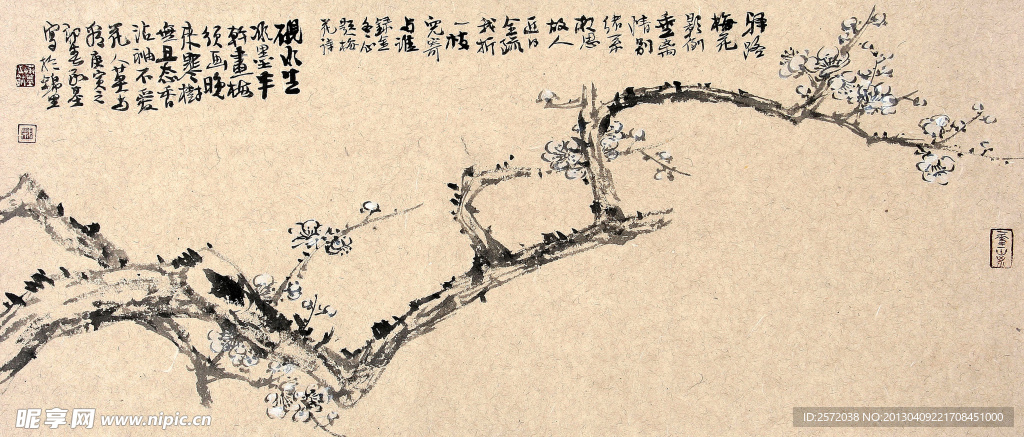 驿路
梅花
影倒
垂离
情别
绪系
相思
故人
近日
全疏
我折
一枝
兒寄
与谁
録金
冬心
题梅
花诗
硯水生
冰墨半
幹畫梅
须画晚
來寒樹
無丑态香
沾袖不爱
花人莫与
看庚寅之
寫於錦里
昵享网 www.nipic.cn
ID:2572038 NO:20130409221708451000